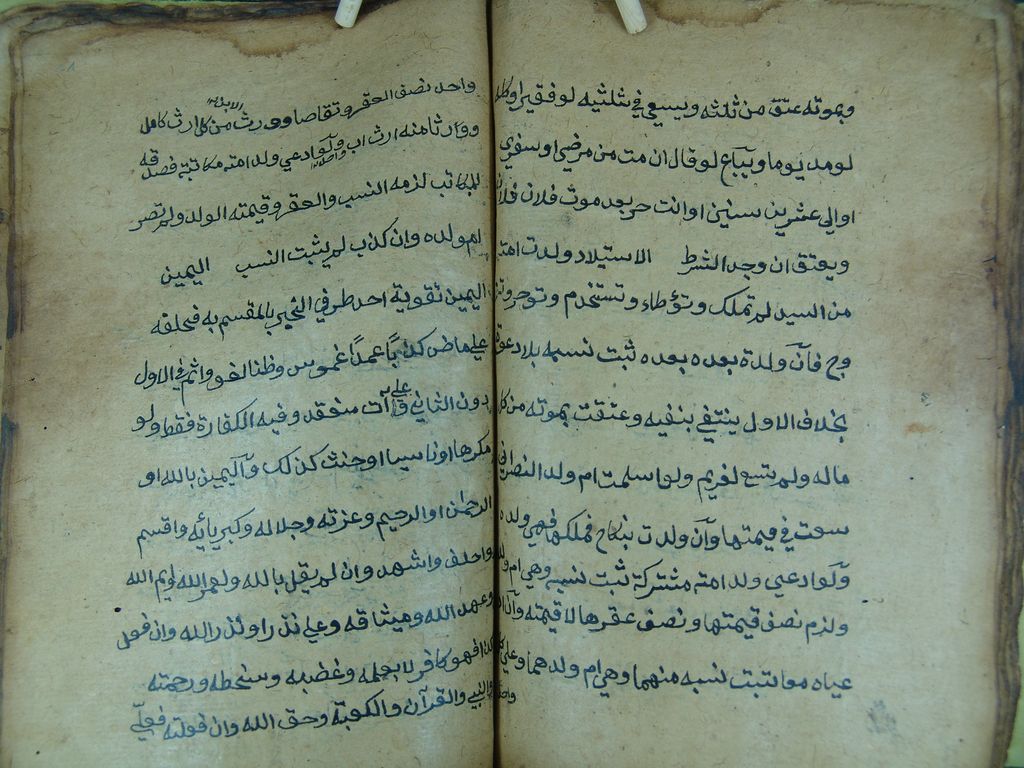 وبموته عتق من ثلثه ويسعي في ثلثيه لو فقيرا وكله
لو مديوما ويباع لو قال ان مت من مرضي او سفري
او الي عشرين سنين او انت حر بعد موت فلان
ويعتق ان وجد الشرط الاستيلاد ولدت امة
من السيد لم تملك وتؤطاء وتستخدم وتوجر
وج فان ولدة بعده بعده ثبت نسبه بلا دعوة
بخلاف الاول ينتفي بنفيه وعتقت بموته من كل
ماله ولم تسع لغريم ولو اسلمت ام ولد النصراني
سعت في قيمتها وآن ولدت بنكاح فملكها فهي ولده
ولو ادعي ولد امته مشتركة ثبت نسبه وهي ام ولده
ولزم نصف قيمتها ونصف عقرها لا قيمته وان
عياه معا ثبت نسبه منهما وهي ام ولدهما وعلي كل
واحد
واحد نصف العقر وتقاصا وورث من كل ارث كامل
الابن
وورثا منه ارث اب ولو ادعي ولد امته مكاتبة فصدقه
واحد
المكاتب لزمه النسب والعقر وقيمته الولد ولم تصر
ام ولده وان كذب لم يثبت النسب اليمين
اليمين تقوية احد طرفي الخبر بالمقسم به فحلفه
علي ماض كذبا عمدا غموس وظنا لغو واثم في الاول
دون الثاني و علي آت منعقد وفيه الكفارة فقط ولو
مكرها او ناسيا او حنث كذلك وآليمين بالله او
الرحمن او الرحيم وعزته وجلاله وكبريائه واقسم
واحلف واشهد وان لم يقل بالله ولعمر الله وايم الله
وعهد الله وميثاقه وعلي نذر او نذر الله وان فعل
كذا فهو كافر لا بعلمه وغضبه وسخطه ورحمته
والنبي والقرآن والكعبة وحق الله وان فعلته فعلي